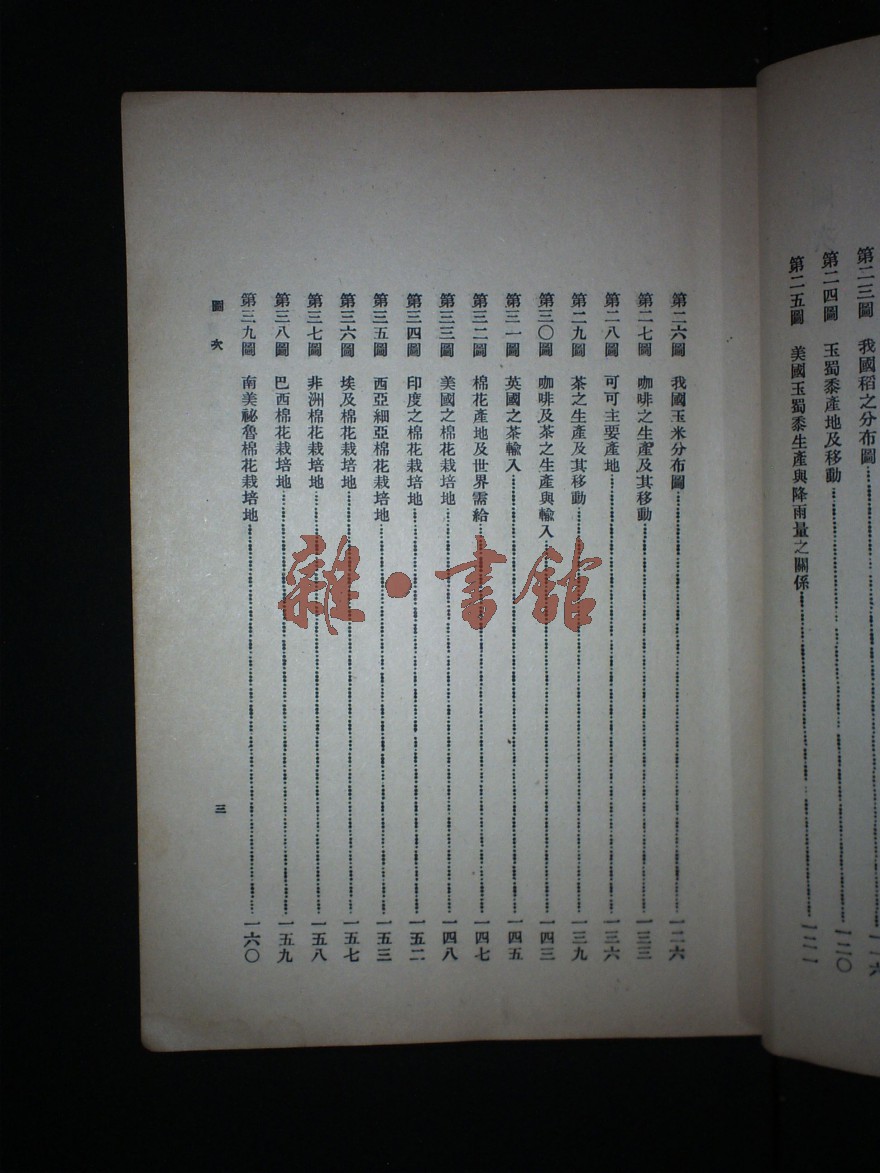 第二三圖 我國稻之分布圖
第二四圖 玉蜀黍產地及移動……一二〇
第二五圖 美國玉蜀黍生產與降雨量之關係……一二一
第二六圖 我國玉米分布圖……一二六
第二七圖 咖啡之生產及其移動……一三三
第二八圖 可可主要產地……一三六
第二九圖 茶之生產及其移動……一三九
第三〇圖 咖啡及茶之生產與輸入……一四三
第三一圖 英國之茶輸入……一四五
第三二圖 棉花產地及世界需給……一四七
第三三圖 美國之棉花栽培地……一四八
第三四圖 印度之棉花栽培地……一五二
第三五圖 西亞細亞棉花栽培地……一五三
第三六圖 埃及棉花栽培地……一五七
第三七圖 非洲棉花栽培地……一五八
第三八圖 巴西棉花栽培地……一五九
第三九圖 南美祕魯棉花栽培地……一六〇
圖次 三
雜·書館